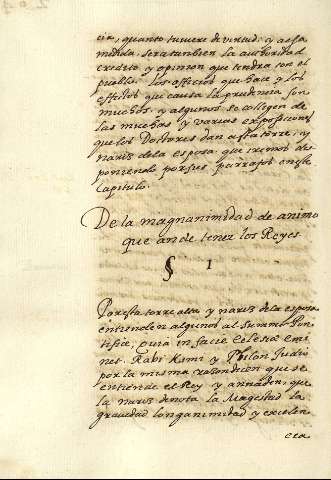 cia, quanto tuviere de virtud: y a esa
medida, sera tambien la authoridad
credito y opinion que tendra con el
pueblo. los officios que hace y los
effectos que causa la prudencia son
muchos. y algunos se collegen de
las muchas y varias exposiciones
que los Doctores dan a esta torre, y
naris de la esposa. que iremos dis
poniendo por sus parrafos en este
capitulo.
De la magnanimidad de animo
que an de tener los Reyes
§ 1
Por esta torre alta y naris de la esposa
entienden algunos al Summo Pon
tifice, quia in facie eclesiæ emi
net. Rabi Kimi y Philon Judio
por la misma razon dicen que se
entiende el Rey y annaden, que
la naris denota la Magestad la
gravedad longanimidad y excelen
cia